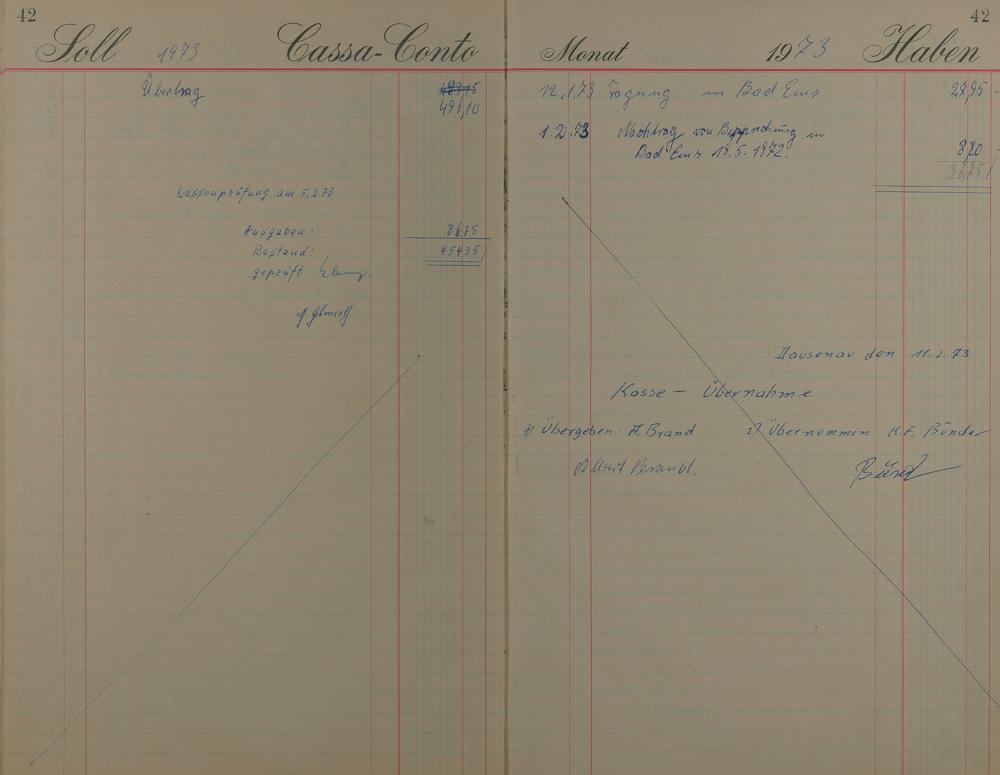 42
Soll 1973 Cassa-Conto
Übertrag
491,10
Kassenprüfung am 5.2.73
Ausgaben: 36,75
Bestand: 454,35
geprüft:
42
Monat 1973 Haben
12.1.73 Tagung in Bad Ems 27,95
1.2.73 Nachtrag von Besprechung in
Bad Ems 19.5.1972. 8,80
36,75
Dausenau den 11.2.73
Kasse — Übernahme
1) Übergeben: A. Brand 2) Übernommen K.F. Bünder
Albert Brand.